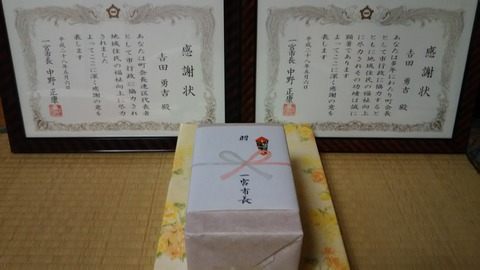 感謝状
吉田 勇吉 殿
あなたは多年にわたり町会長
として市行政に協力する
とともに地域住民の福祉向上
に尽力されその功績は誠に
顕著であります
よってここに深く感謝の意を
表します
平成二十八年五月六日
一宮市長 中野 正康
感謝状
吉田 勇吉 殿
あなたは町会長連区代表者
として市行政に協力され
地域住民の福祉向上に尽力
されました
よってここに深く感謝の意を
表します
平成二十八年五月六日
一宮市長 中野 正康
贈
一宮市長